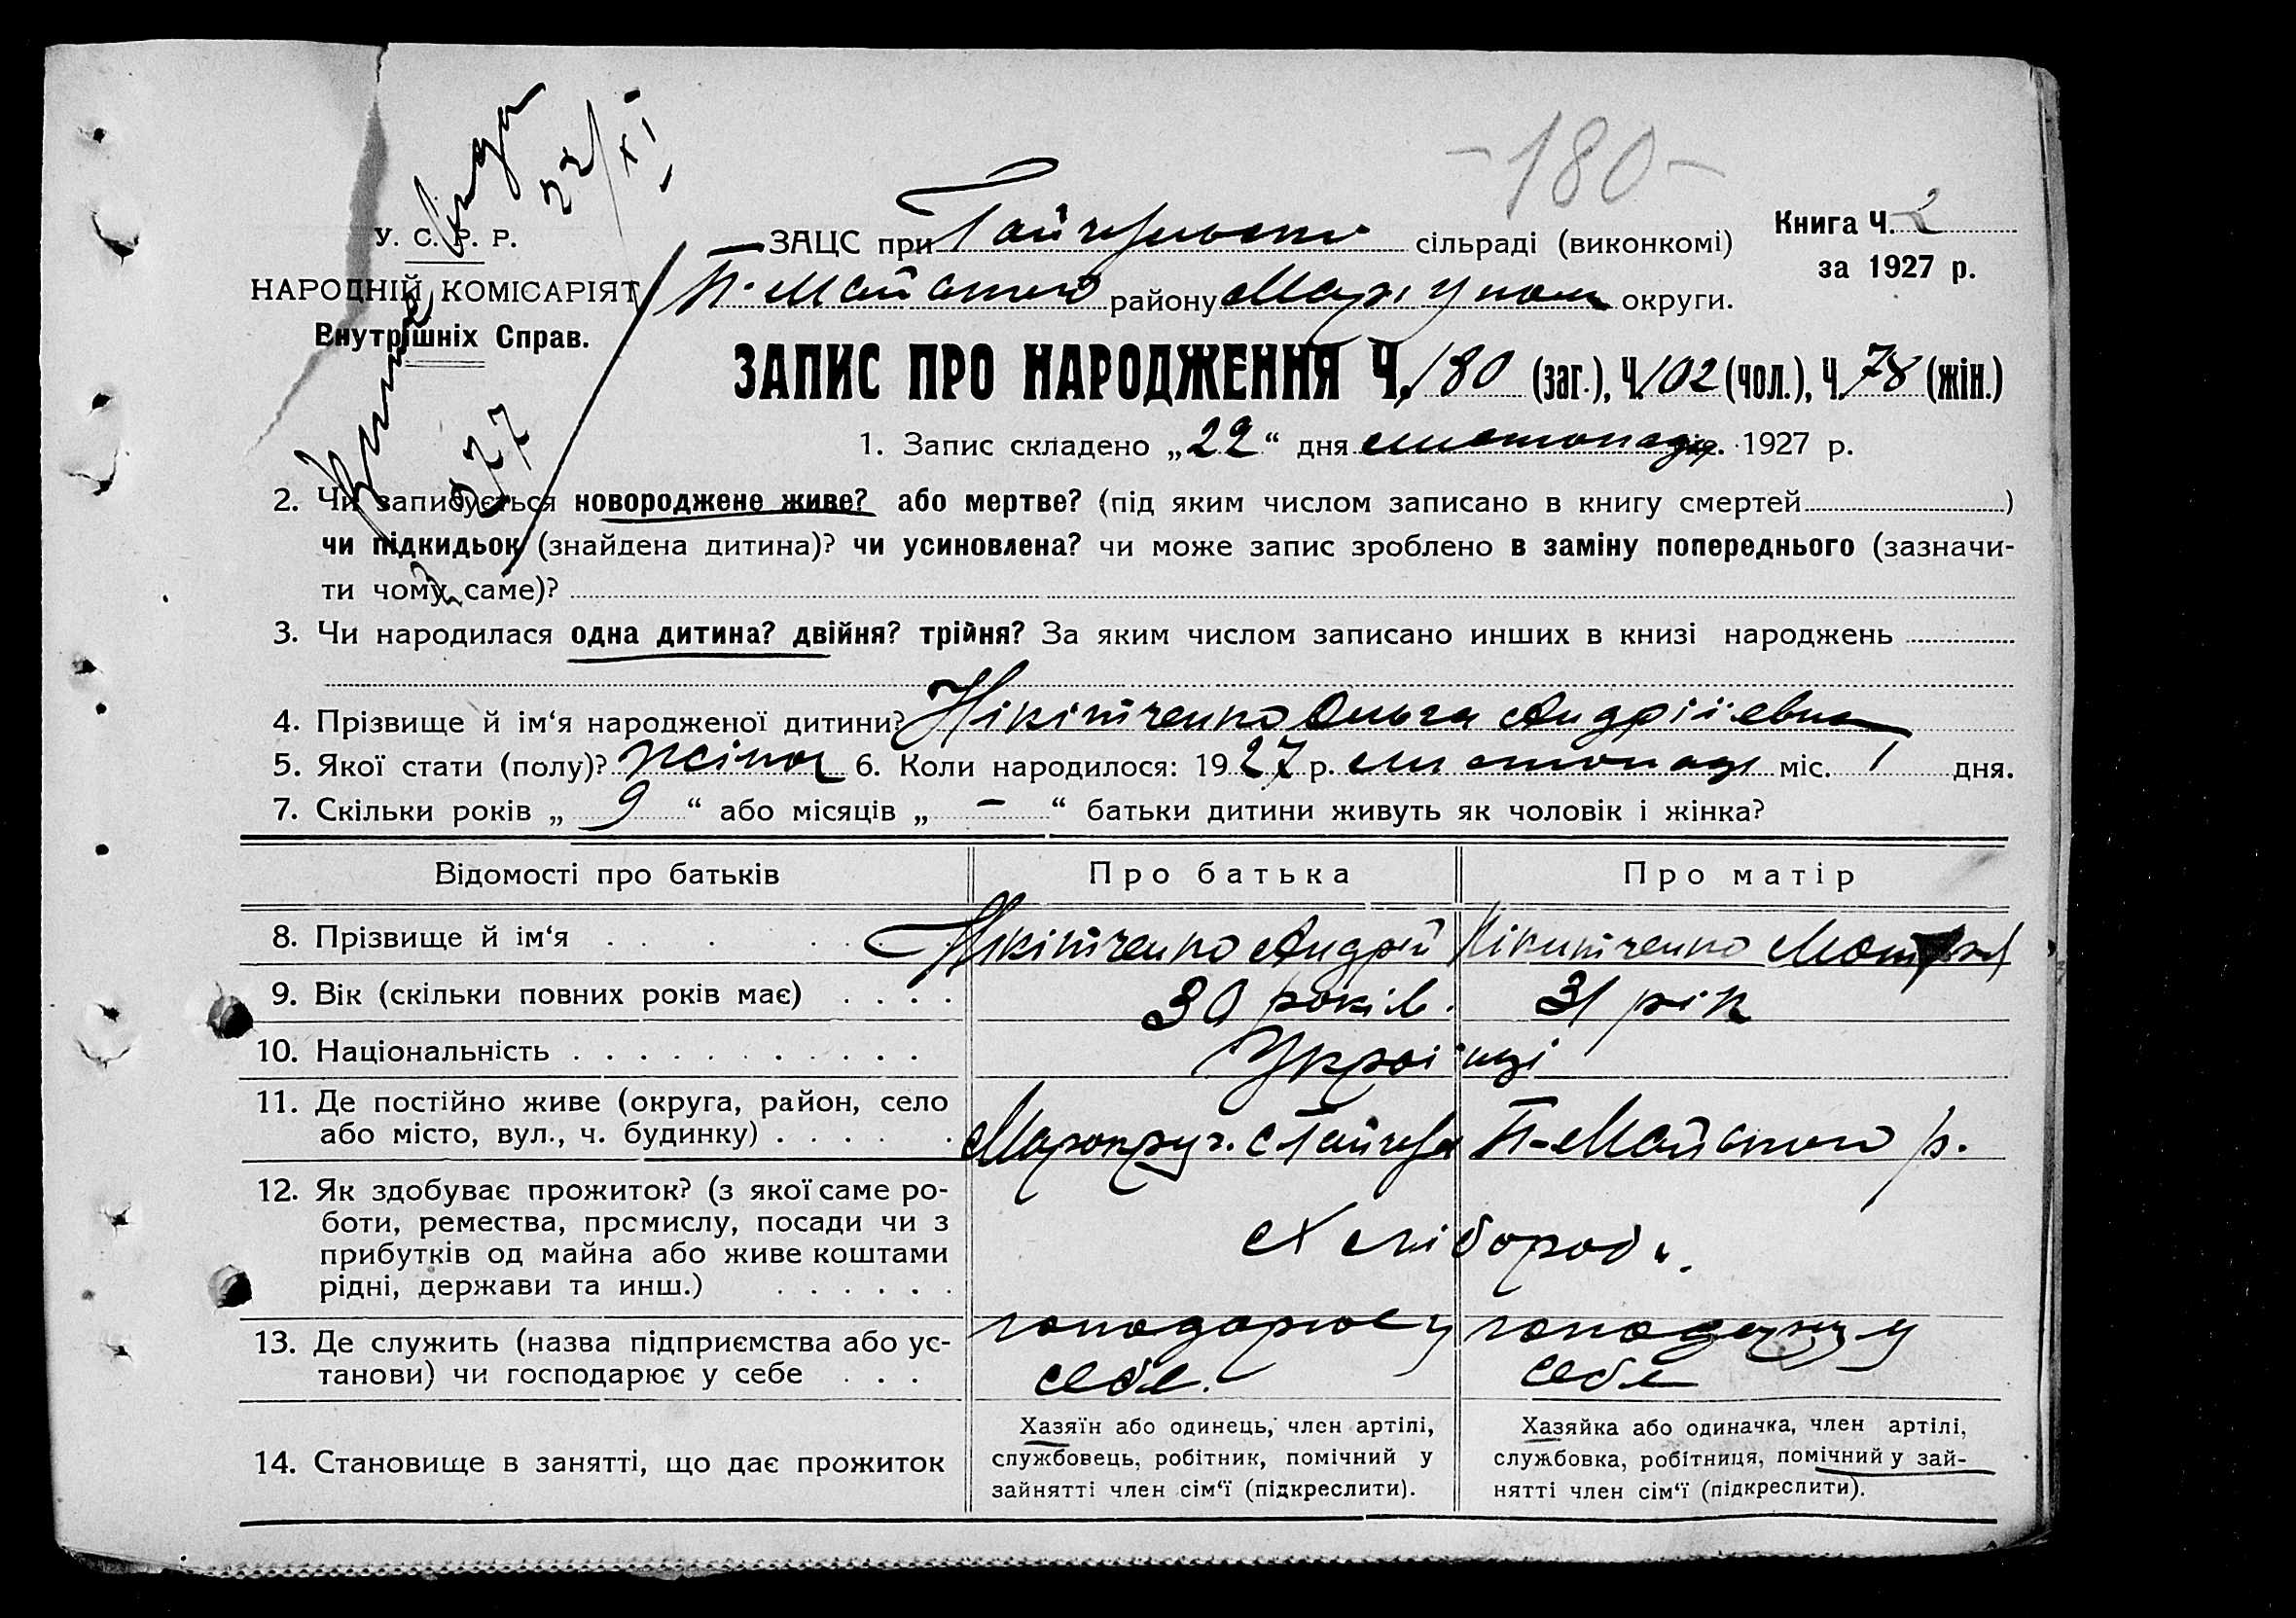 -180-
У. С. Р. Р.
НАРОДНІЙ КОМІСАРІЯТ
Внутрішніх Справ.
ЗАЦС при Гайчульскі сільраді (виконкомі)
Книга Ч. 2
за 1927 р.
П-Майського району Маріупол округи.
ЗАПИС ПРО НАРОДЖЕННЯ Ч. 180 (заг.), Ч. 102 (чол.), Ч. 78 (жін.)
1. Запис складено „22“ дня листопада 1927 р.
2. Чи записується новороджене живе? або мертве? (під яким числом записано в книгу смертей )
чи підкидьок (знайдена дитина)? чи усиновлена? чи може запис зроблено в заміну попереднього (зазначи-
ти чому саме)?
3. Чи народилася одна дитина? двійня? трійня? За яким числом записано инших в книзі народжень
4. Прізвище й ім‘я народженої дитини? Нікітченко Ольга Андріівна
5. Якої стати (полу)? жіноч 6. Коли народилося: 1927 р. листопад міс. 1 дня.
7. Скільки років „ 9 “ або місяців „ – “ батьки дитини живуть як чоловік і жінка?
Відомості про батьків Про батька Про матір
8. Прізвище й ім‘я . . . . . . Нікітченко Андрій Нікитченко Мотря
9. Вік (скільки повних років має) . . . . 30 років. 31 рік
10. Національність . . . . . . . . . . . Україїнці
11. Де постійно живе (округа, район, село
або місто, вул., ч. будинку) . . . . . П-Майського р.
12. Як здобуває прожиток? (з якої саме ро-
боти, ремества, промислу, посади чи з
прибутків од майна або живе коштами
рідні, держави та инш.) . . . . . .
Хлібороби.
13. Де служить (назва підприємства або ус-
танови) чи господарює у себе . . .
господарює у себе. господарує у себе
14. Становище в занятті, що дає прожиток
Хазяїн або одинець, член артілі,
службовець, робітник, помічний у
зайнятті член сім‘ї (підкреслити).
Хазяйка або одиначка, член артілі,
службовка, робітниця, помічний у зай-
нятті член сім‘ї (підкреслити).